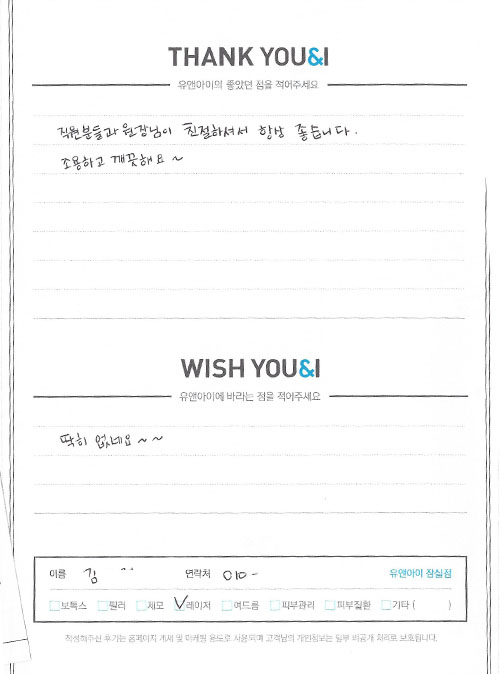 THANK YOU&I
유앤아이의 좋았던 점을 적어주세요
직원분들과 원장님이 친절하셔서 항상 좋습니다.
조용하고 깨끗해요~
WISH YOU&I
유앤아이에 바라는 점을 적어주세요
딱히 없네요~~
이름 김 연락처 010- 유앤아이 잠실점
보톡스 필러 제모 레이저 여드름 피부관리 피부질환 기타 ( )
작성해주신 후기는 홈페이지 게재 및 마케팅 용도로 사용되며 고객님의 개인정보는 일부 비공개 처리로 보호됩니다.